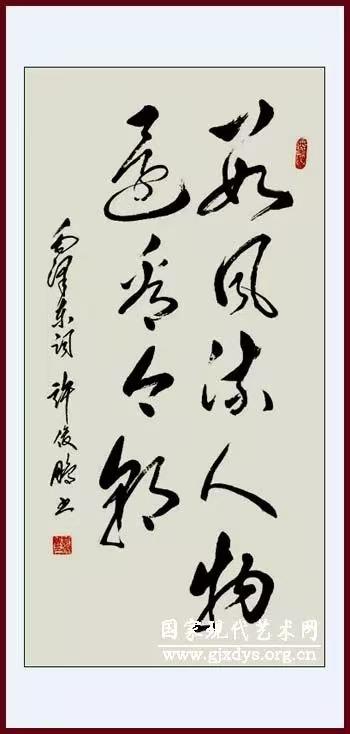 数风流人物
还看今朝
毛泽东词 许俊鹏书
国家现代艺术网
www.gjxdys.org.cn